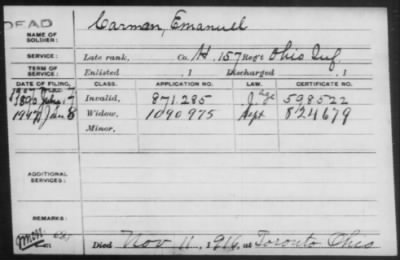 DEAD
NAME OF SOLDIER: Carman, Emanuel
SERVICE: Late rank, Co. H, 157 Reg't Ohio Inf.
TERM OF SERVICE: Enlisted , 1 Discharged , 1
DATE OF FILING. CLASS. APPLICATION NO. LAW. CERTIFICATE NO.
1890 July 7 Invalid, 871.285 J age 598522
1917 Jan 8 Widow, 1090975 Sept 824679
Minor,
ADDITIONAL SERVICES:
REMARKS:
Died Nov 11, 1916, at Toronto Ohio